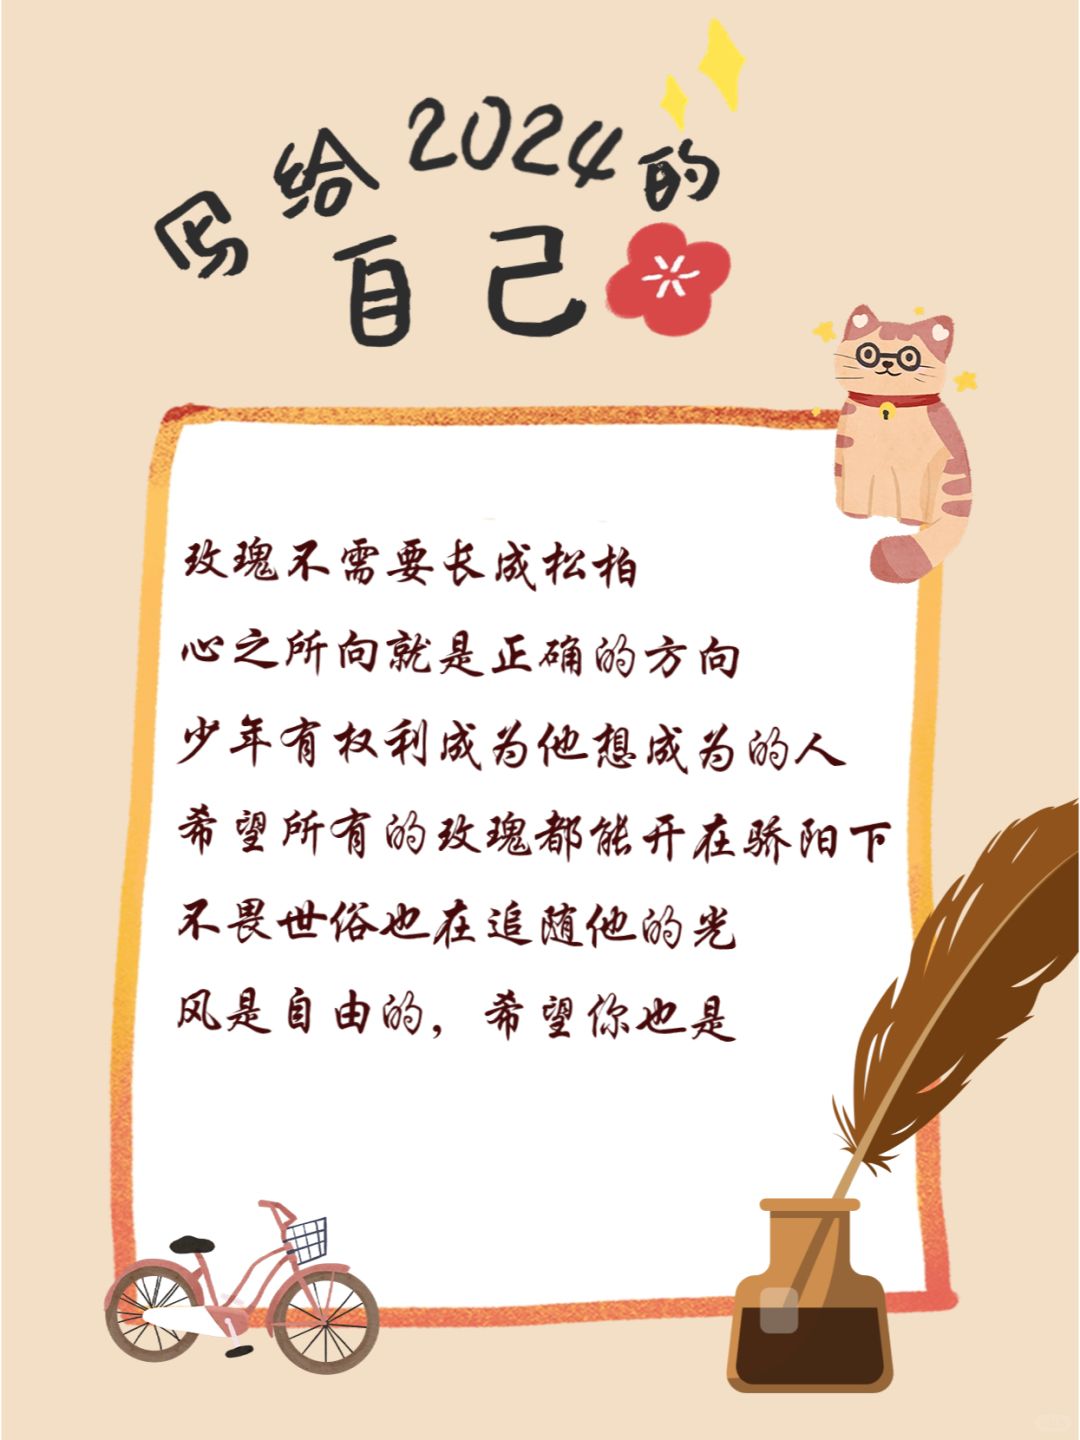 写给2024的
自己
玫瑰不需要长成松柏
心之所向就是正确的方向
少年有权利成为他想成为的人
希望所有的玫瑰都能开在骄阳下
不畏世俗也在追随他的光
风是自由的，希望你也是